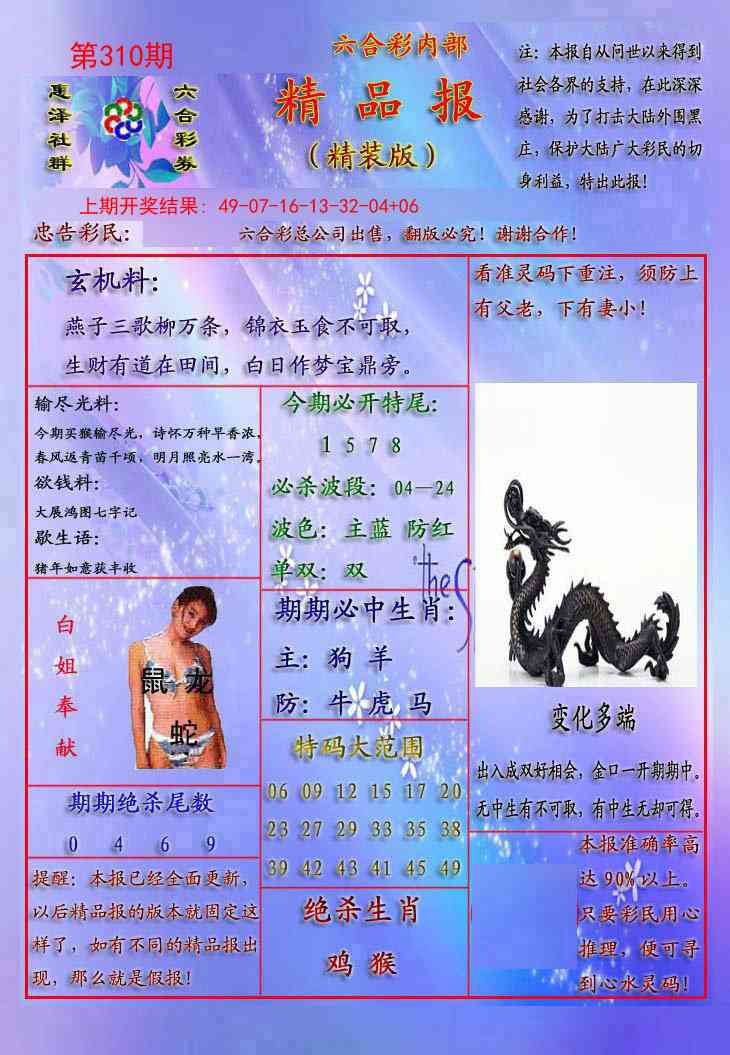 第310期
六合彩内部
惠泽社群
六合彩券
精品报
（精装版）
注：本报自从问世以来得到
社会各界的支持，在此深深
感谢，为了打击大陆外围黑
庄，保护大陆广大彩民的切
身利益，特出此报！
上期开奖结果: 49-07-16-13-32-04+06
忠告彩民：
六合彩总公司出售，翻版必究！谢谢合作！
玄机料：
燕子三歌柳万条，锦衣玉食不可取，
生财有道在田间，白日作梦宝鼎旁。
看准灵码下重注，须防上
有父老，下有妻小！
输尽光料：
今期买猴输尽光，诗怀万种早香浓，
春风返青苗千顷，明月照亮水一湾。
欲钱料：
大展鸿图七字记
歇生语：
猪年如意获丰收
今期必开特尾：
1 5 7 8
必杀波段：04—24
波色：主蓝 防红
单双：双
the S
期期必中生肖：
主：狗 羊
防：牛 虎 马
白姐奉献
鼠 龙
蛇
变化多端
出入成双好相会，金口一开期期中。
无中生有不可取，有中生无却可得。
特码大范围
06 09 12 15 17 20
23 27 29 33 35 38
39 42 43 41 45 49
期期绝杀尾数
0 4 6 9
提醒：本报已经全面更新，
以后精品报的版本就固定这
样了，如有不同的精品报出
现，那么就是假报！
绝杀生肖
鸡 猴
本报准确率高
达90%以上。
只要彩民用心
推理，便可寻
到心水灵码！